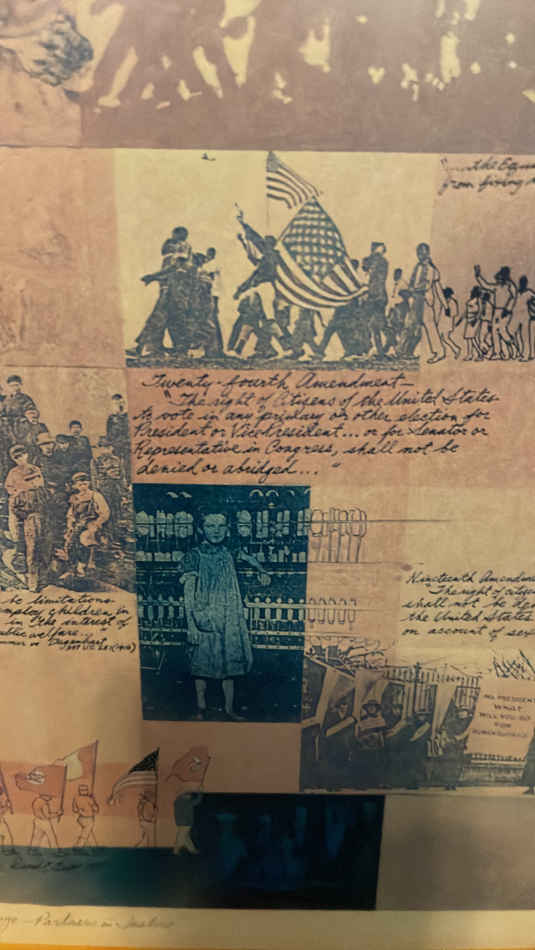 the Equa
from giving
Twenty-fourth Amendment—
"The right of Citizens of the United States
to vote in any primary or other election for
President or Vice President... or for Senator or
Representative in Congress, shall not be
denied or abridged..."
be limitations
employ children in
in the interest of
public welfare.
vs Dagenhart
Nineteenth Amendme
"The right of citize
shall not be den
the United States
on account of sex
MR PRESIDENT
WHAT
WILL YOU DO
FOR
— Partners in Justice